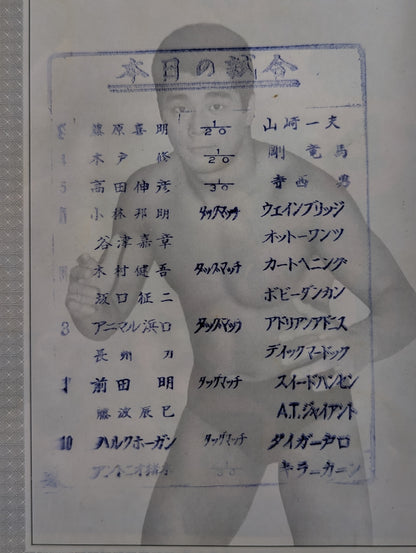 本日の試合
藤原喜明 1/20 山崎一夫
4 木戸修 1/20 剛竜馬
5 高田伸彦 1/30 寺西勇
小林邦明 タッグマッチ ウエインブリッジ
谷津嘉章 オットーワンツ
木村健吾 タッグマッチ カートヘニング
坂口征二 ボビーダンカン
8 アニマル浜口 タッグマッチ アドリアンアドニス
長州力 ディックマードック
前田明 タッグマッチ スイードハンセン
藤波辰巳 A.T.ジャイアント
10 ハルクホーガン タッグマッチ タイガー戸口
アントニオ猪木 キラーカーン